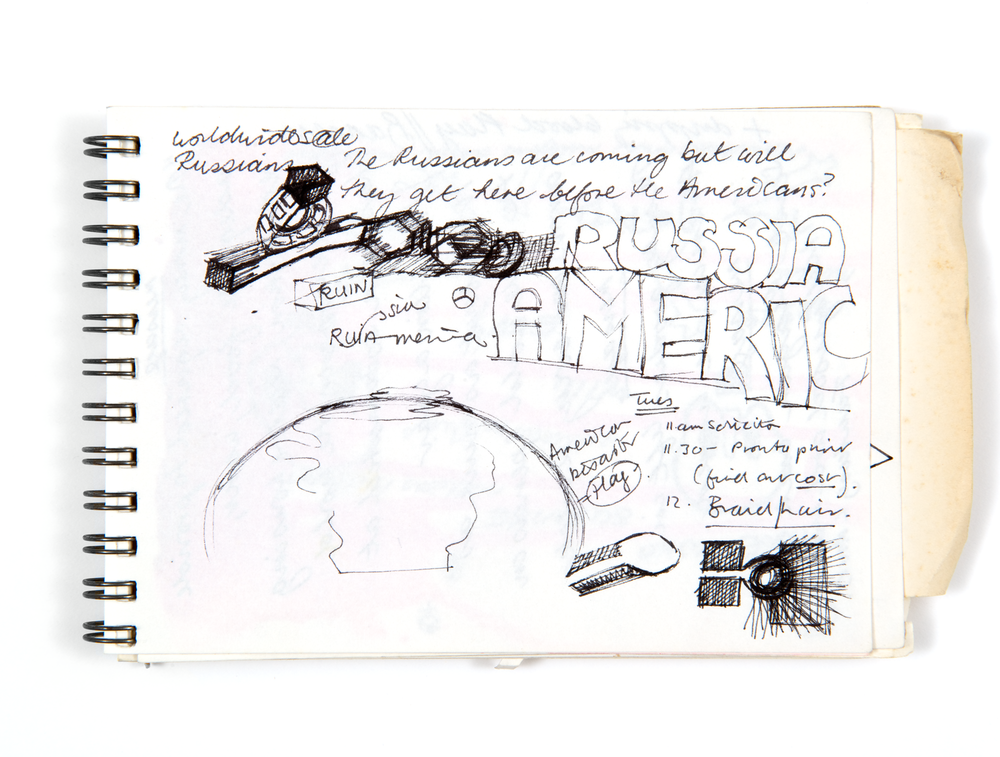 worldwide scale
Russians
The Russians are coming but will
they get here before the Americans?
RUSSIA
AMERIC
RUIN
ssia
RUIAmerica
Tues
American
Disaster
Play
11.am
11.30 - Pronto print
(find out cost).
12. Braid hair.